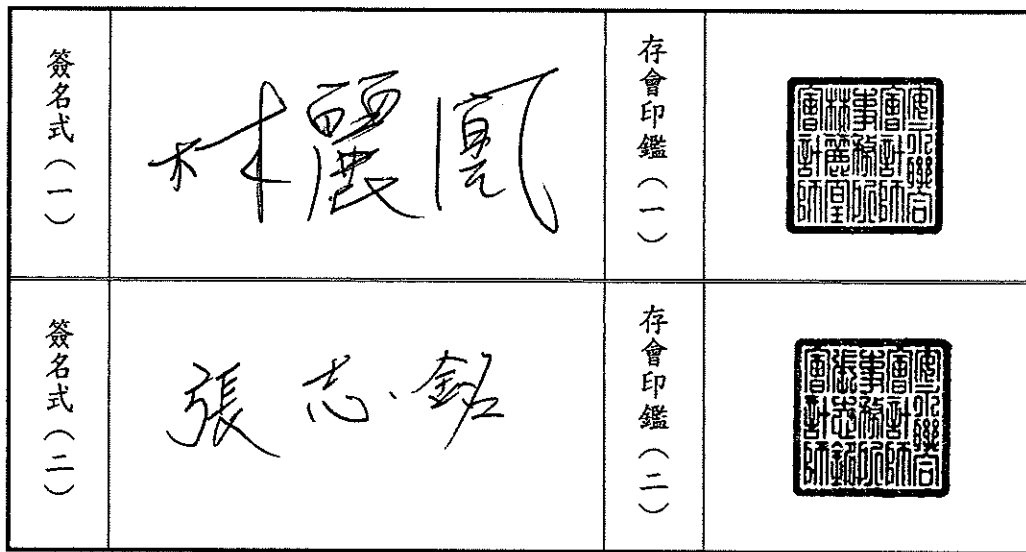 簽名式（一）
林麗凰
存會印鑑（一）
安永聯合
會計師
事務所
林麗凰
會計師
簽名式（二）
張志銘
存會印鑑（二）
安永聯合
會計師
事務所
張志銘
會計師